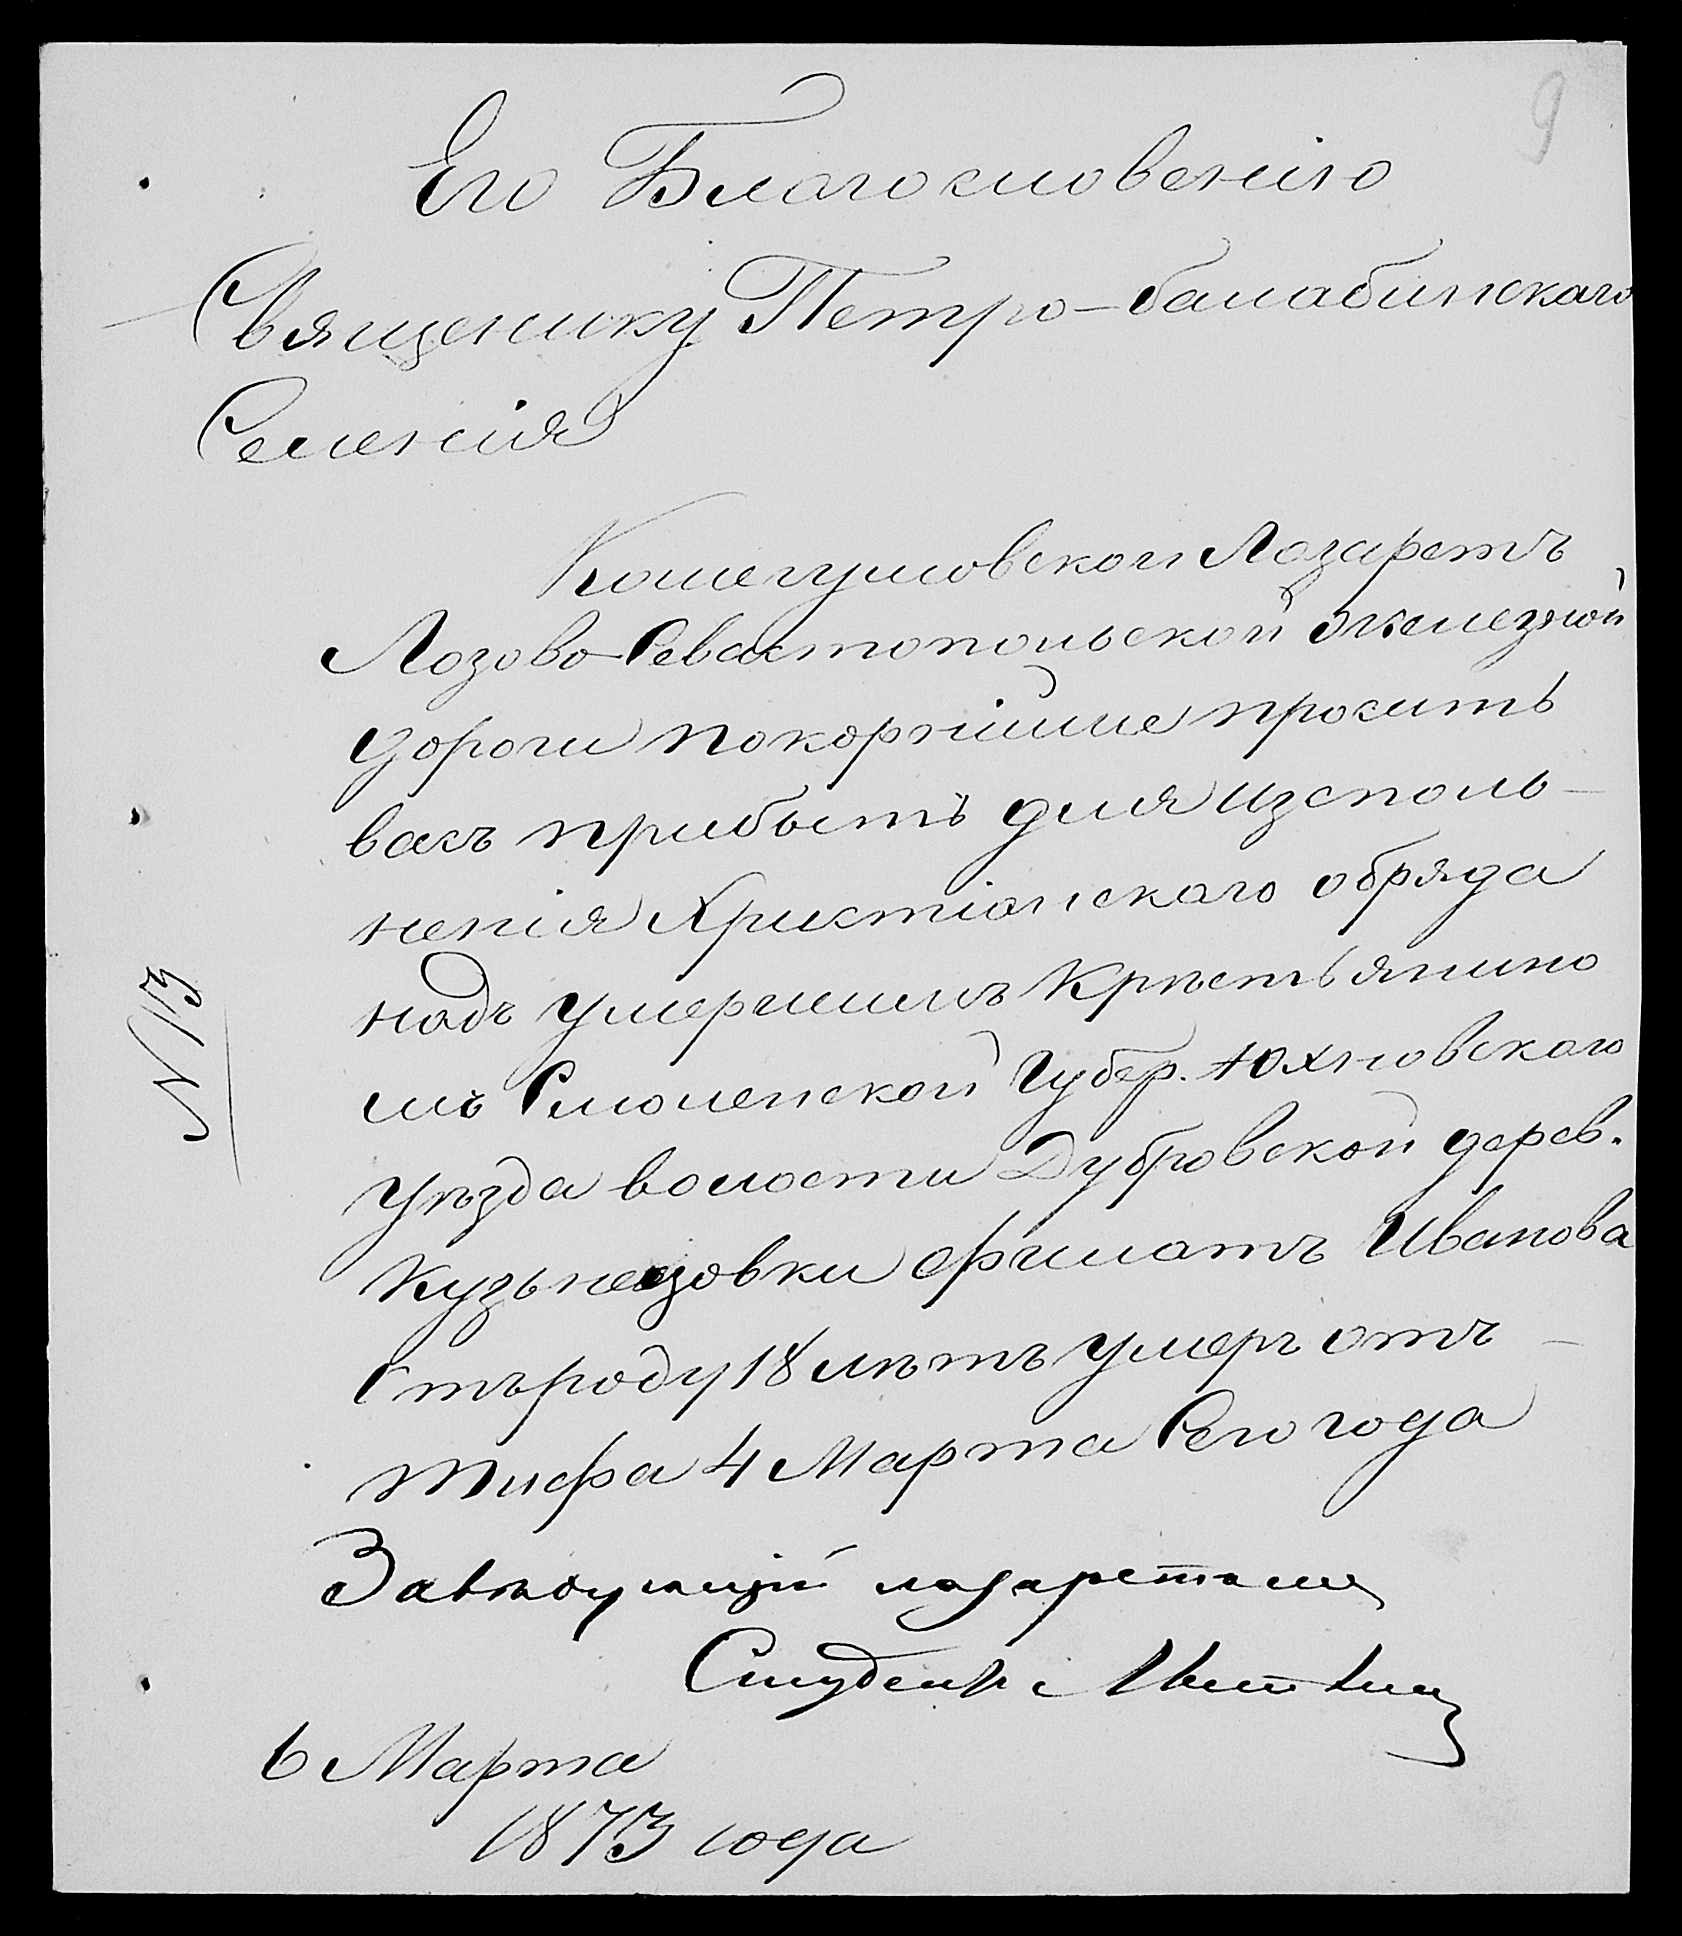 9
Его Благословенію
Священику Петро-балабинскаго
Селенія
Кошегумовской Лазаретъ
Лозово-Севастопольской железной
дороги покорнійше проситъ
васъ прибыть для изсполь-
ненія Христіанскаго обряда
надъ умершимъ Крѣстьянино
мъ Смоленской Губер. Юхновскаго
Уѣзда волости Дубровской дерев.
Кузьнецовки Филатъ Иванова
Отъроду 18 лѣтъ умеръ отъ
Тифа 4 Марта Сего года
Завѣдующій лазаретомъ
Студентъ
6 Марта
1873 года
N 13